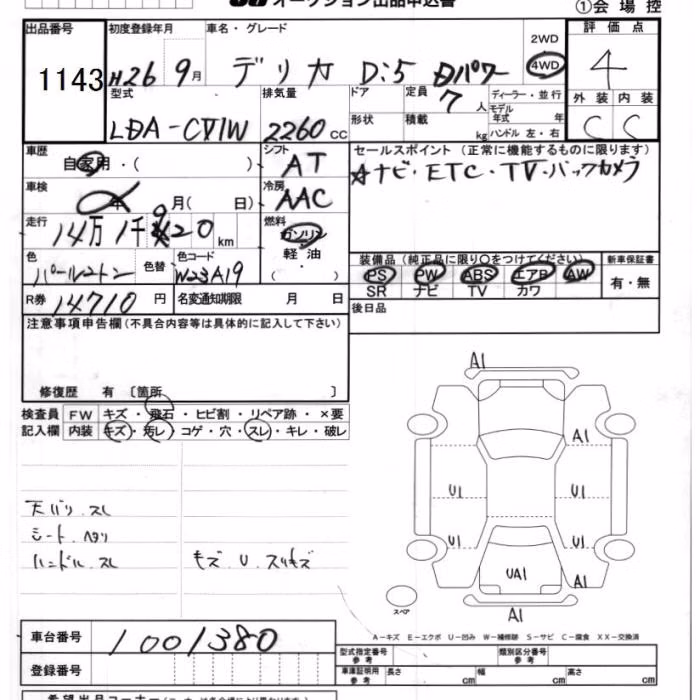 オークション出品申込書
①会場控
出品番号 初度登録年月 車名・グレード 2WD 評価点
1143 H26 9月 デリカ D:5 Dパワー 4WD 4
型式 排気量 ドア 定員 7人 ディーラー・並行 外装 内装
モデル
年式 年
LDA-CV1W 2260cc 形状 積載 kg ハンドル 左・右 C C
車歴 自家用・( ) シフト AT セールスポイント (正常に機能するものに限ります)
☆ナビ・ETC・TV・バックカメラ
車検 年 9月( 日) 冷房 AAC
走行 14万 1千 20km 燃料 ガソリン
軽油
( )
色 パールツートン 色替 色コード W23A19
装備品 (純正品に限り○をつけてください) 新車保証書
PS PW ABS エアB AW 有・無
SR ナビ TV カワ
R券 14710円 名変通知期限 月 日
後日品
注意事項申告欄 (不具合内容等は具体的に記入して下さい)
修復歴 有 〔箇所 〕
検査員 FW キズ・飛石・ヒビ割・リペア跡・×要
記入欄 内装 キズ・汚レ・コゲ・穴・スレ・キレ・破レ
天バリ スレ
シート ヘタリ
ハンドル スレ キズ U スリキズ
A1
A1
U1 U1
U1 U1
UA1 A1
スペア
A1
A-キズ E-エクボ U-凹み W-補修跡 S-サビ C-腐食 XX-交換済
車台番号 1001380
型式指定番号 参考 類別区分番号 参考
登録番号
車庫証明用 参考 長さ cm 幅 cm 高さ cm
希望出品コーナー